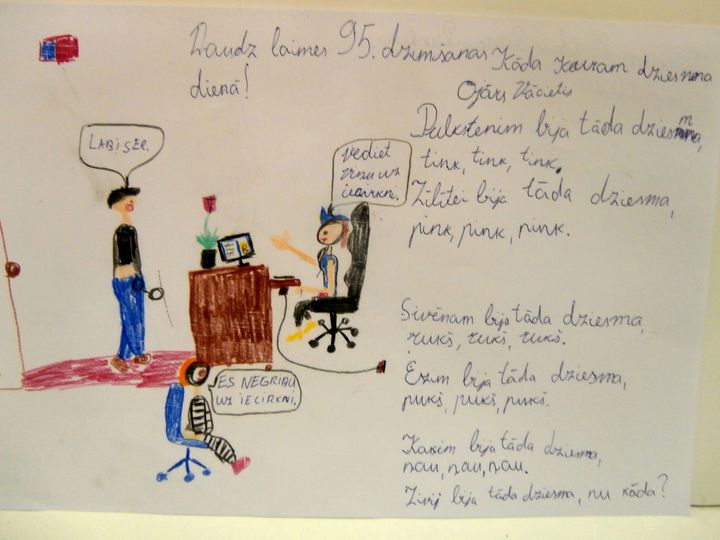 Daudz laimes 95. dzimšanas
dienā!
Kāda kuram dziesma
Ojārs Vācietis
Pulkstenim bija tāda dziesma,
tink, tink, tink.
Zīlītei bija tāda dziesma,
pink, pink, pink.
Sivēnam bija tāda dziesma,
rukš, rukš, rukš.
Ezim bija tāda dziesma,
pukš, pukš, pukš.
Kaķim bija tāda dziesma,
ņau, ņau, ņau.
Zivij bija tāda dziesma, nu kāda?
LABI SER.
vediet
uz
iecirkni.
ES NEGRIBU
UZ IECIRKNI.